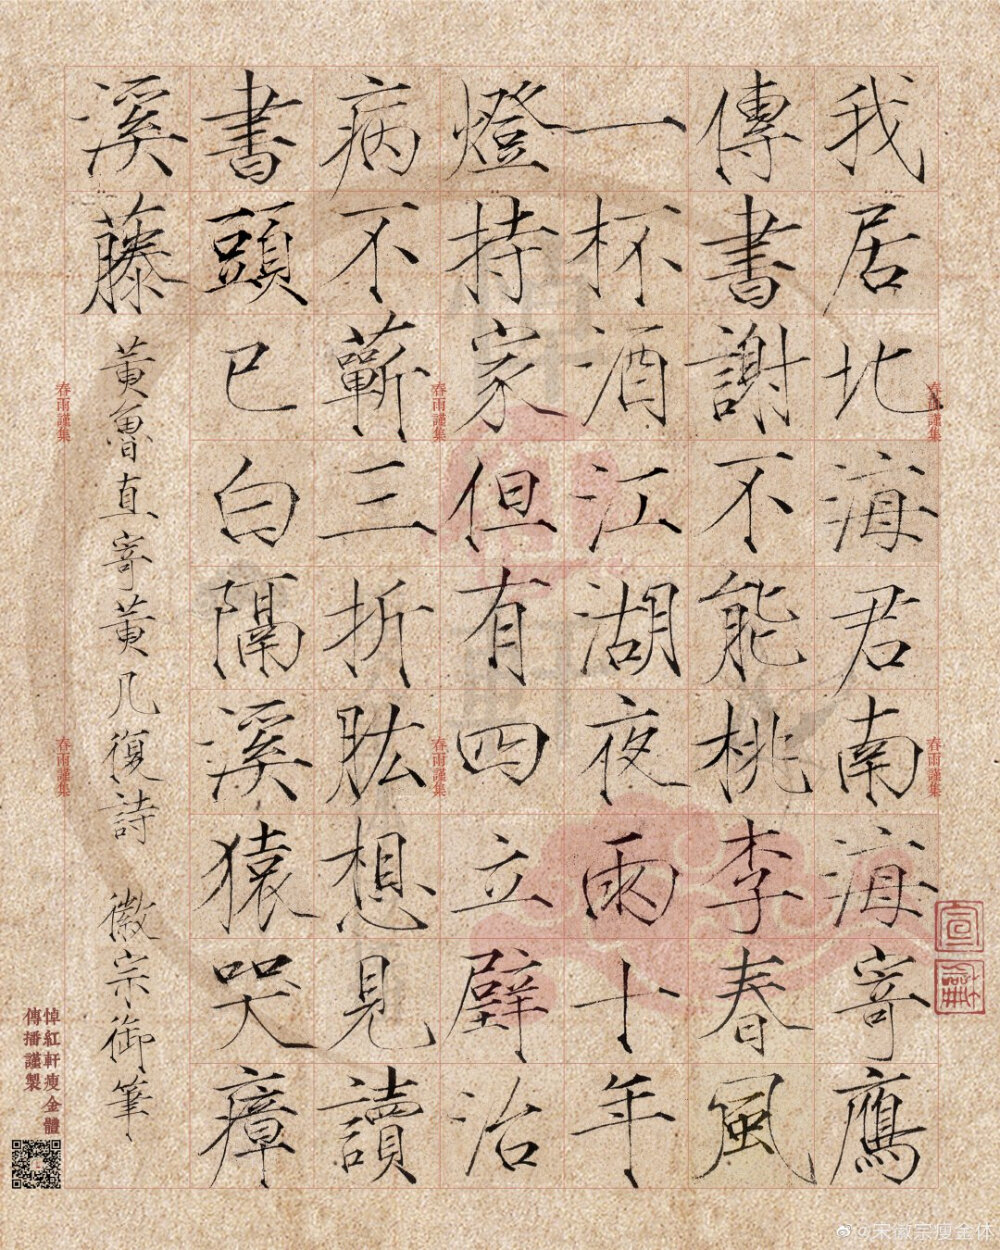 我居北海君南海寄鴈
傳書謝不能桃李春風
一杯酒江湖夜雨十年
燈持家但有四立壁治
病不蘄三折肱想見讀
書頭已白隔溪猿哭瘴
溪藤
黄魯直寄黄几復詩 徽宗御筆
春雨謹集
春雨謹集
春雨謹集
春雨謹集
春雨謹集
春雨謹集
悼紅軒瘦金體
傳播謹製
@宋徽宗瘦金体